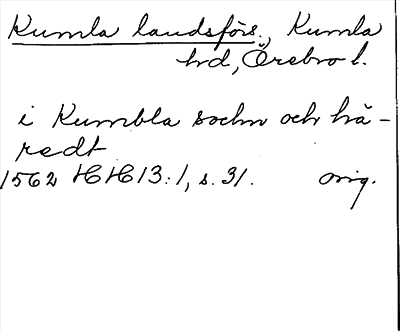 Kumla landsförs., Kumla
hd, Örebro l.
i Kumbla sochn och hä-
redt
1562 HH 13:1, s. 31. orig.